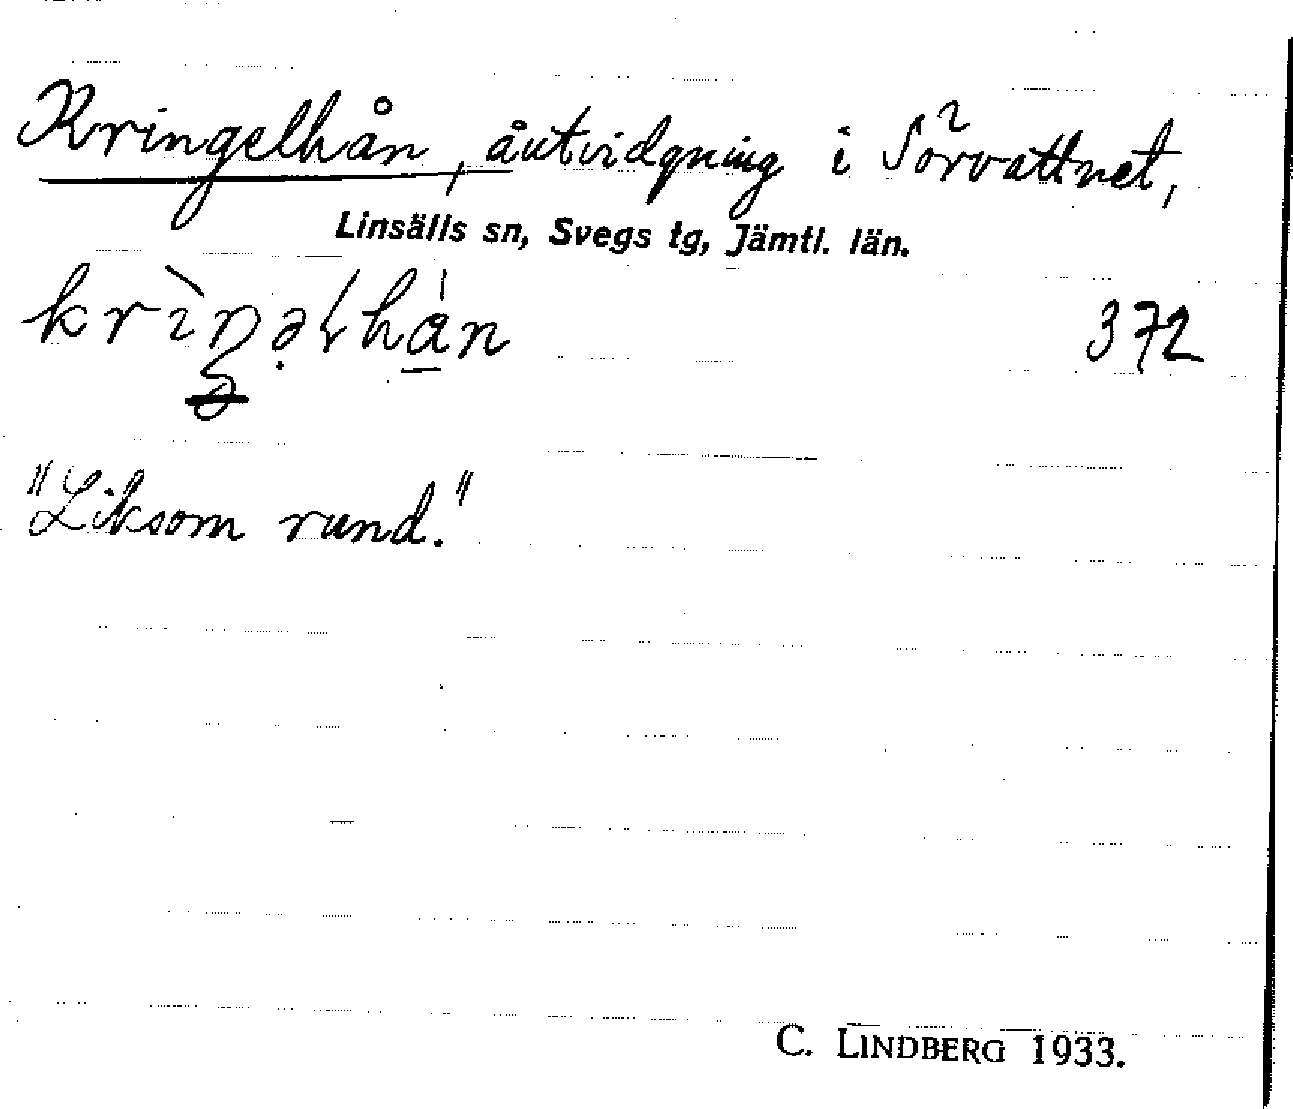 Kringelhån, åutvidgning i Sörvattnet,
Linsälls sn, Svegs tg, Jämtl. län.
372
"Liksom rund."
C. LINDBERG 1933.